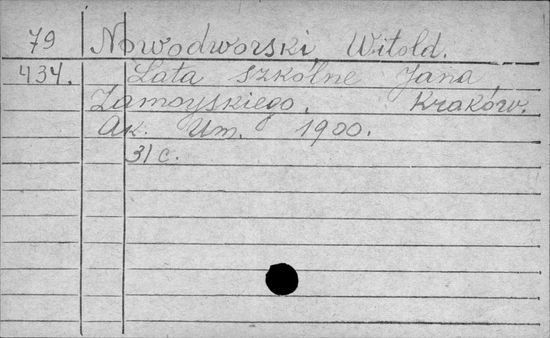 79 Nowodworski Witold.
434. Lata szkólne Jana
Zamoyskiego. Kraków.
Ak. Um. 1900.
31 c.